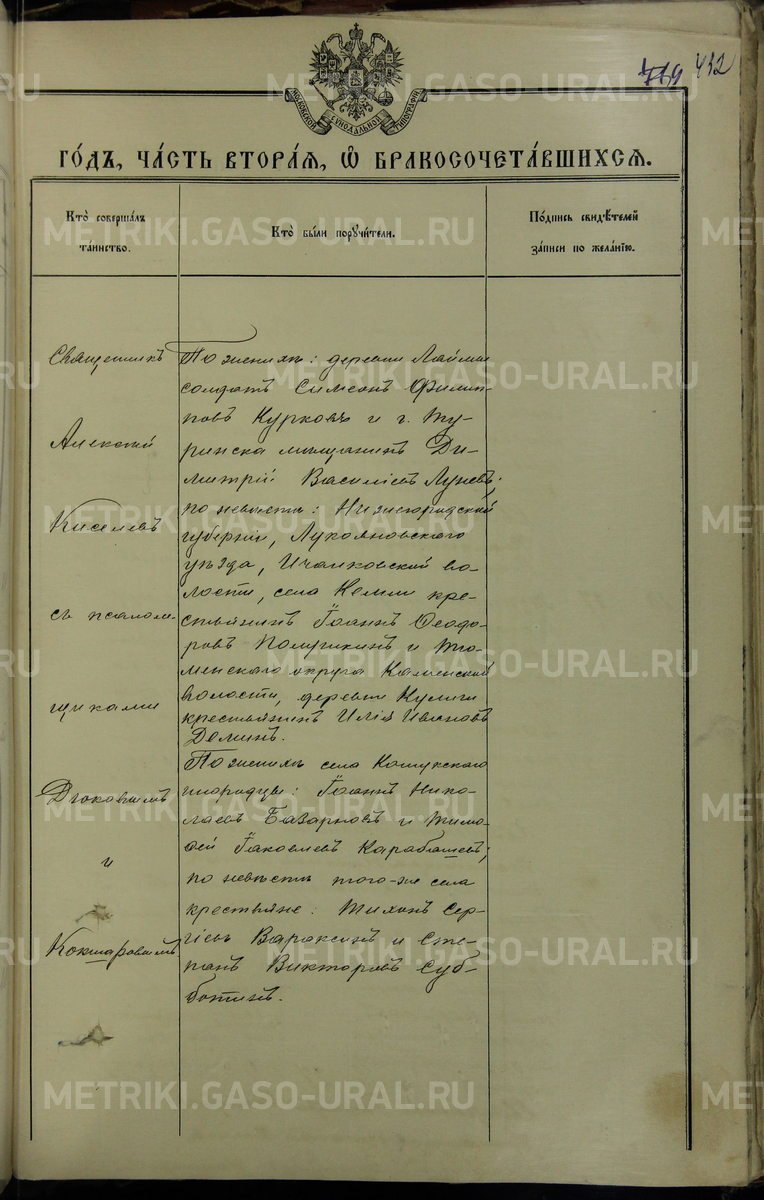 769 412
МОСКОВСКОЙ СѴНОДАЛЬНОЙ ТИПОГРАФІИ
ГО́ДЪ, ЧА́СТЬ ВТОРА́Я, Ѡ҆ БРАКОСОЧЕТА́ВШИХСЯ.
Кто̀ соверша́лъ
та́инство.
Кто̀ бы́ли порꙋчи́тели.
По́дпись свидѣ́телей
за́писи по жела́нію.
Священникъ
Алексій
Киселевъ
съ псалом-
щиками
Дьяковымъ
и
Кокшаровымъ
По женихѣ: деревни
солдатъ Симеонъ Филип-
повъ Курковъ и г. Ту-
ринска мѣщанинъ Ди-
митрій Василіевъ Луневъ;
по невѣстѣ: Нижегородской
губерніи, Лукояновскаго
уѣзда, Ичалковской во-
лости, села Кемли кре-
стьянинъ Іоаннъ Ѳеодо-
ровъ и Тю-
менскаго округа Каменской
волости, деревни Кулиги
крестьянинъ Илія Ивановъ
Деминъ.
По женихѣ села Кошукскаго
инородцы: Іоаннъ Нико-
лаевъ Базарновъ и Тимо-
ѳей Іаковлевъ Карабашевъ;
по невѣстѣ того-же села
крестьяне: Тихонъ Сер-
гіевъ Вараксинъ и Сте-
панъ Викторовъ Суб-
ботинъ.
METRIKI.GASO-URAL.RU